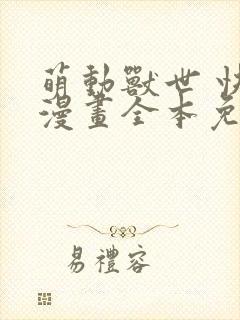 萌動獸世 快
漫畫全本免
易禮容